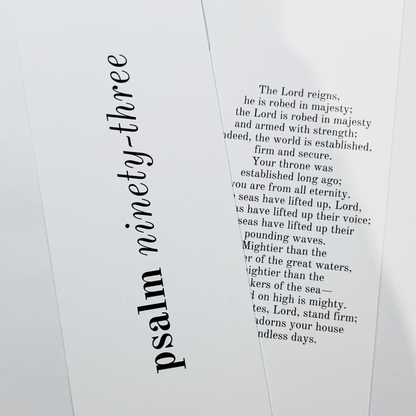 psalm ninety-three
The Lord reigns,
he is robed in majesty;
the Lord is robed in majesty
and armed with strength;
the world is established,
firm and secure.
Your throne was
established long ago;
you are from all eternity.
seas have lifted up, Lord,
have lifted up their voice;
seas have lifted up their
pounding waves.
Mightier than the
of the great waters,
than the
of the sea—
on high is mighty.
Lord, stand firm;
adorns your house
days.